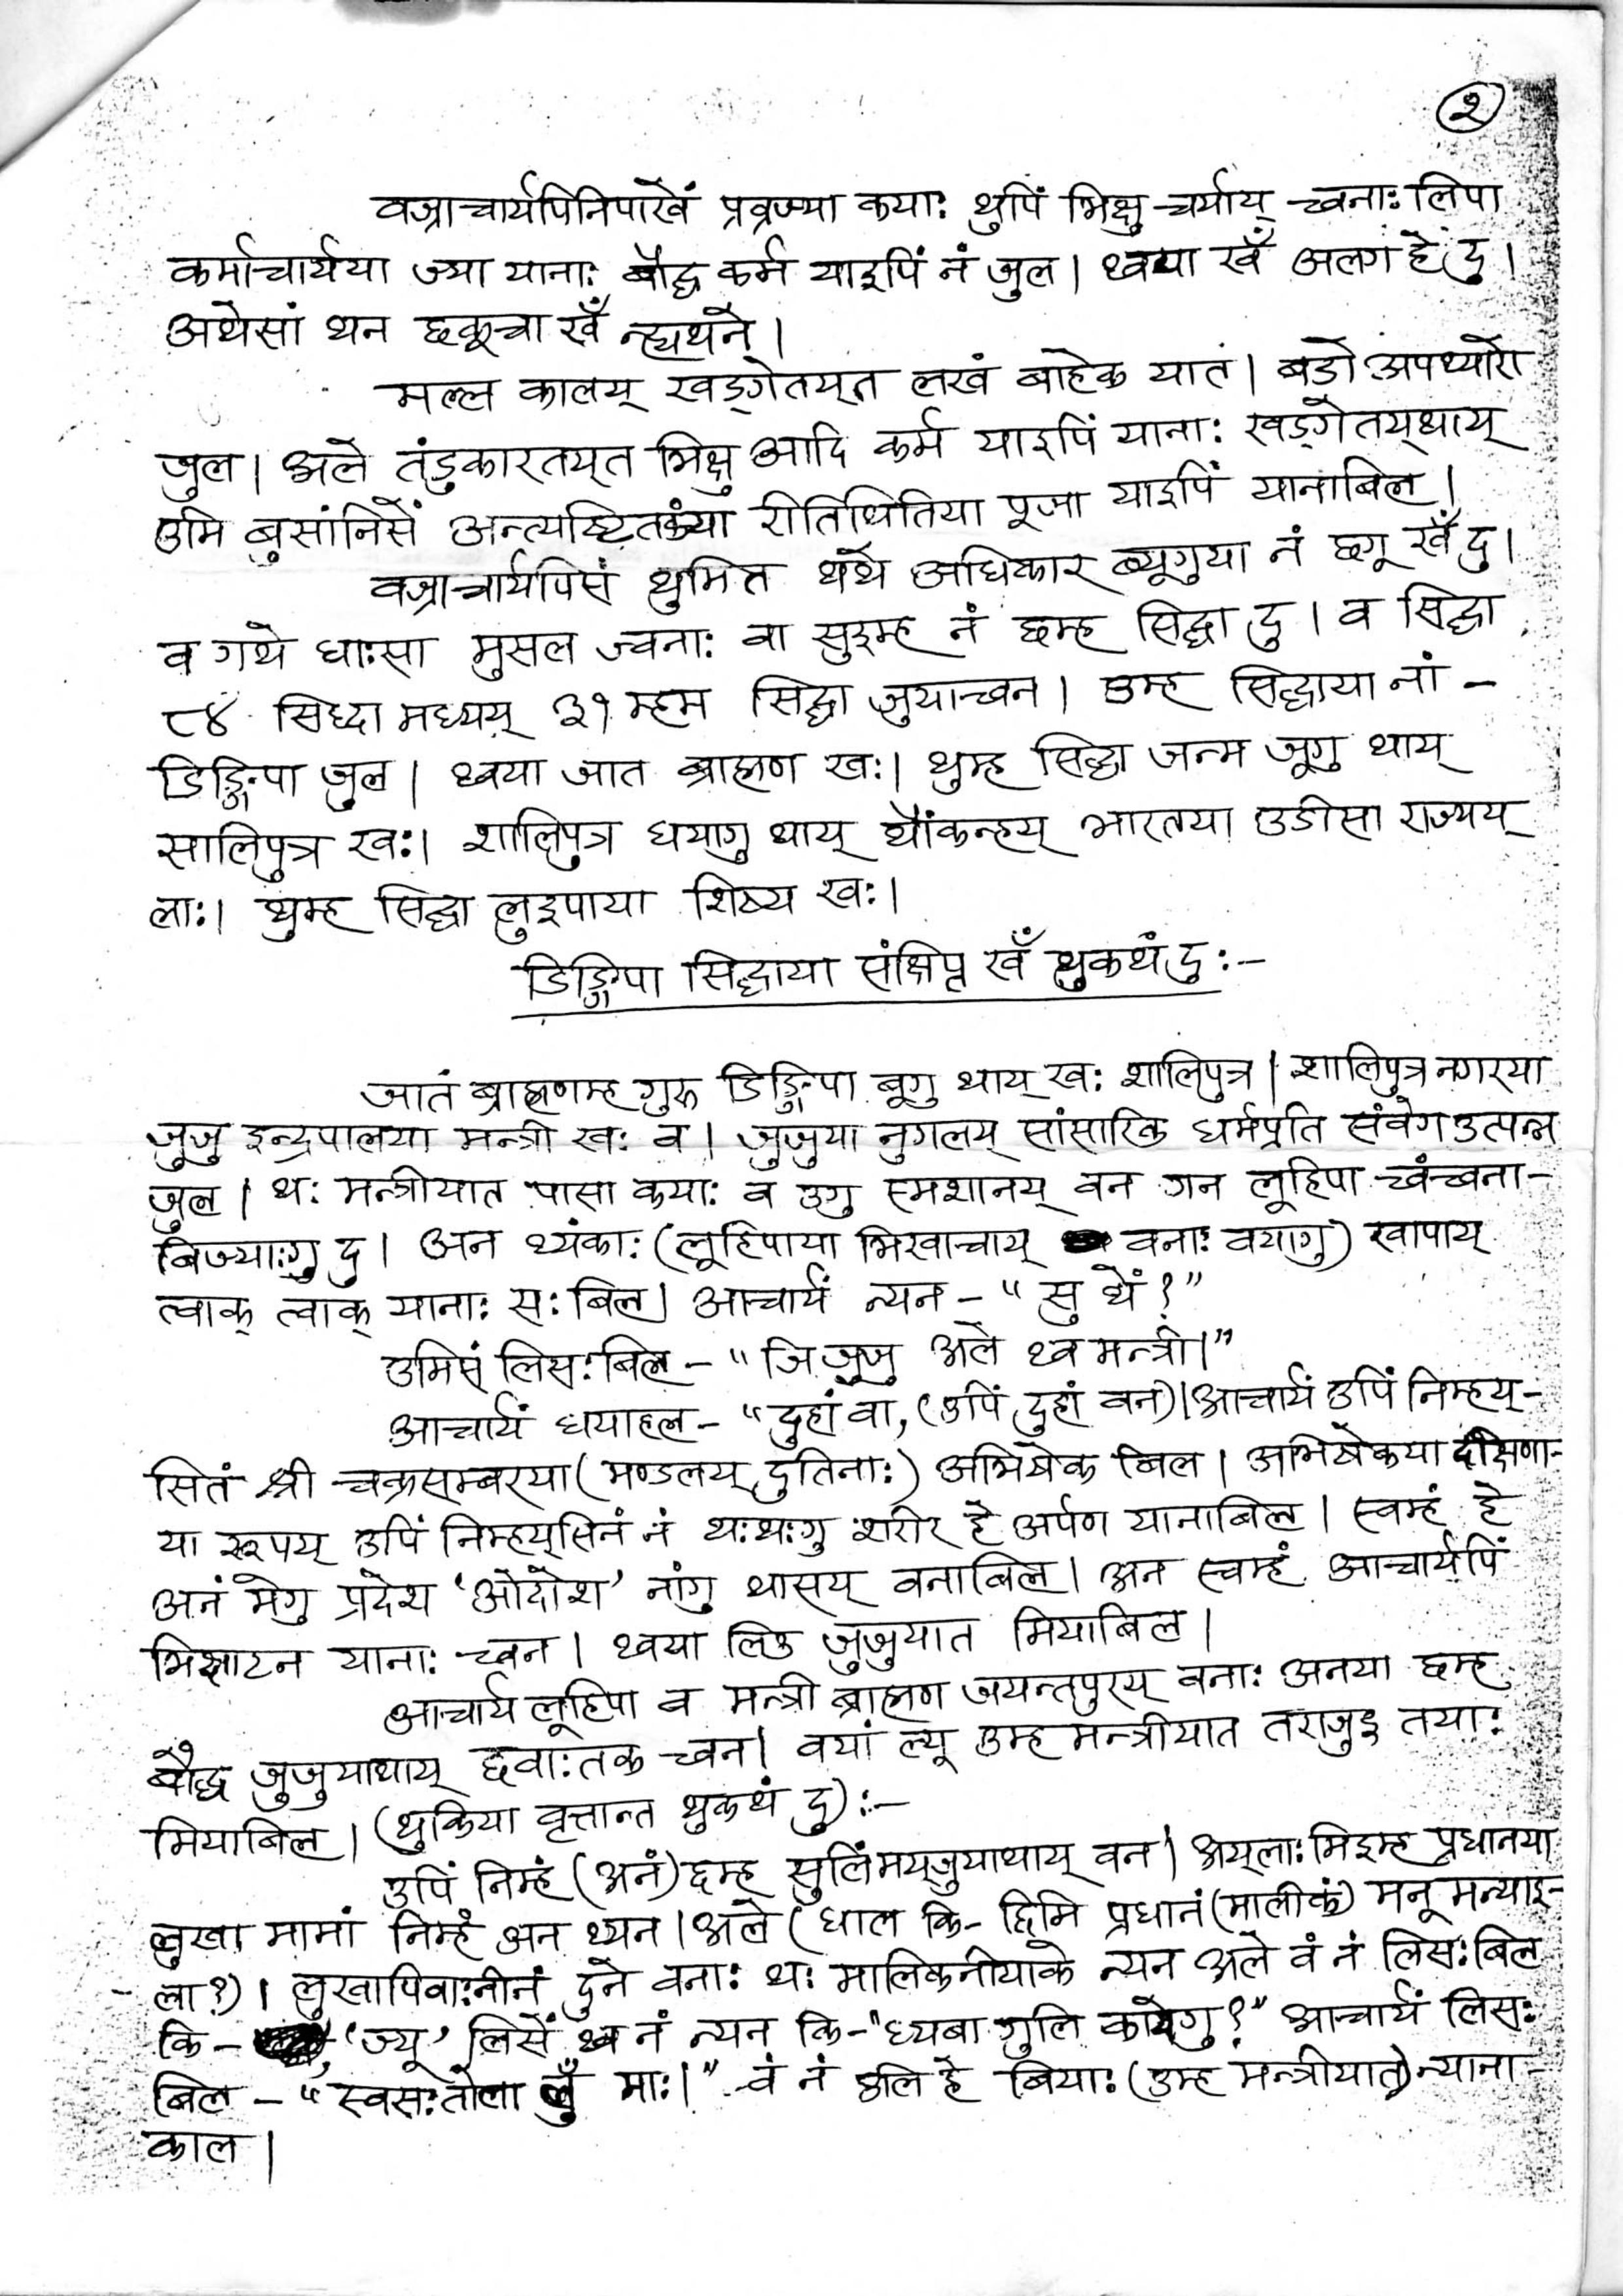 २
वज्राचार्यपिनिपाखें प्रव्रज्या कयाः थुपिं भिक्षु चर्याय् च्वनाः लिपा
कर्माचार्यया ज्या यानाः बौद्ध कर्म याइपिं नं जुल। थ्वया खँ अलग हे दु।
अथेसां थन छकूचा खँ न्ह्यथने।
मल्ल कालय् खड्गेतय्त लखं बाहेक यात। बडो अपध्यारो
जुल। अले तंडुकारतय्त भिक्षु आदि कर्म याइपिं यानाः खड्गेतय्थाय्
उमि बुसांनिसें अन्त्यष्टितकंया रीतिथितिया पूजा याइपिं यानाबिल।
वज्राचार्यपिसं थुमित थथे अधिकार ब्यूगुया नं छगू खँ दु।
व गथे धाःसा मुसल ज्वनाः वा सुइम्ह नं छम्ह सिद्धा दु। व सिद्धा
८४ सिद्धा मध्यय् ३१ म्हम सिद्धा जुयाच्वन। उम्ह सिद्धाया नां -
डिङ्गिपा जुल। थ्वया जात ब्राह्मण खः। थुम्ह सिद्धा जन्म जूगु थाय्
सालिपुत्र खः। शालिपुत्र धयागु थाय् थौंकन्हय् भारतया उडीसा राज्यय्
लाः। थुम्ह सिद्धा लुइपाया शिष्य खः।
डिङ्गिपा सिद्धाया संक्षिप्त खँ थुकथं दु:-
जातं ब्राह्मणम्ह गुरु डिङ्गिपा बूगु थाय् खः शालिपुत्र। शालिपुत्र नगरया
जुजु इन्द्रपालया मन्त्री खः व। जुजुया नुगलय् सांसारिक धर्मप्रति संवेग उत्पन्न
जुल। थः मन्त्रीयात पासा कयाः व उगु स्मशानय् वन गन लूहिपा च्वंच्वना-
बिज्याःगु दु। अन थ्यंकाः (लूहिपाया भिखाचाय् वनाः वयागु) खापाय्
त्वाक् त्वाक् यानाः सः बिल। आचार्यं न्यन - "सु थें?"
उमिसं लिसःबिल - "जि जुजु अले थ्व मन्त्री।"
आचार्यं धयाहल - "दुहां वा, (उपिं दुहां वन)। आचार्यं उपिं निम्हय्-
सितं श्री चक्रसम्बरया (मण्डलय् दुतिनाः) अभिषेक बिल। अभिषेकया दक्षिणा-
या रूपय् उपिं निम्हय्सिनं नं थःथःगु शरीर हे अर्पण यानाबिल। स्वम्हं हे
अनं मेगु प्रदेश 'ओदोश' नांगु थासय् वनाबिल। अन स्वम्हं आचार्यपिं
भिक्षाटन यानाः च्वन। थ्वया लिउ जुजुयात मियाबिल।
आचार्य लूहिपा व मन्त्री ब्राह्मण जयन्तपुरय् वनाः अनया छम्ह
बौद्ध जुजुयाथाय् छवाःतक च्वन। वयां ल्यू उम्ह मन्त्रीयात तराजुइ तयाः
मियाबिल। (थुकिया वृत्तान्त थुकथं दु):-
उपिं निम्हं (अनं) छम्ह सुलिंमय्जुयाथाय् वन। अय्लाः मिइम्ह प्रधानया
लुखा मामां निम्हं अन थ्यन। अले (धाल कि- छिमि प्रधानं (मालीकं) मनू मन्याइ-
- ला?)। लुखापिवाःनीनं दुने वनाः थः मालिकनीयाके न्यन अले वं नं लिसःबिल
कि - 'ज्यू' लिसें थ्व नं न्यन कि- "ध्यबा गुलि कायेगु?" आचार्यं लिसः
बिल - "स्वसःतोला लुँ माः।" वं नं उलि हे बियाः (उम्ह मन्त्रीयात) न्याना-
काल।